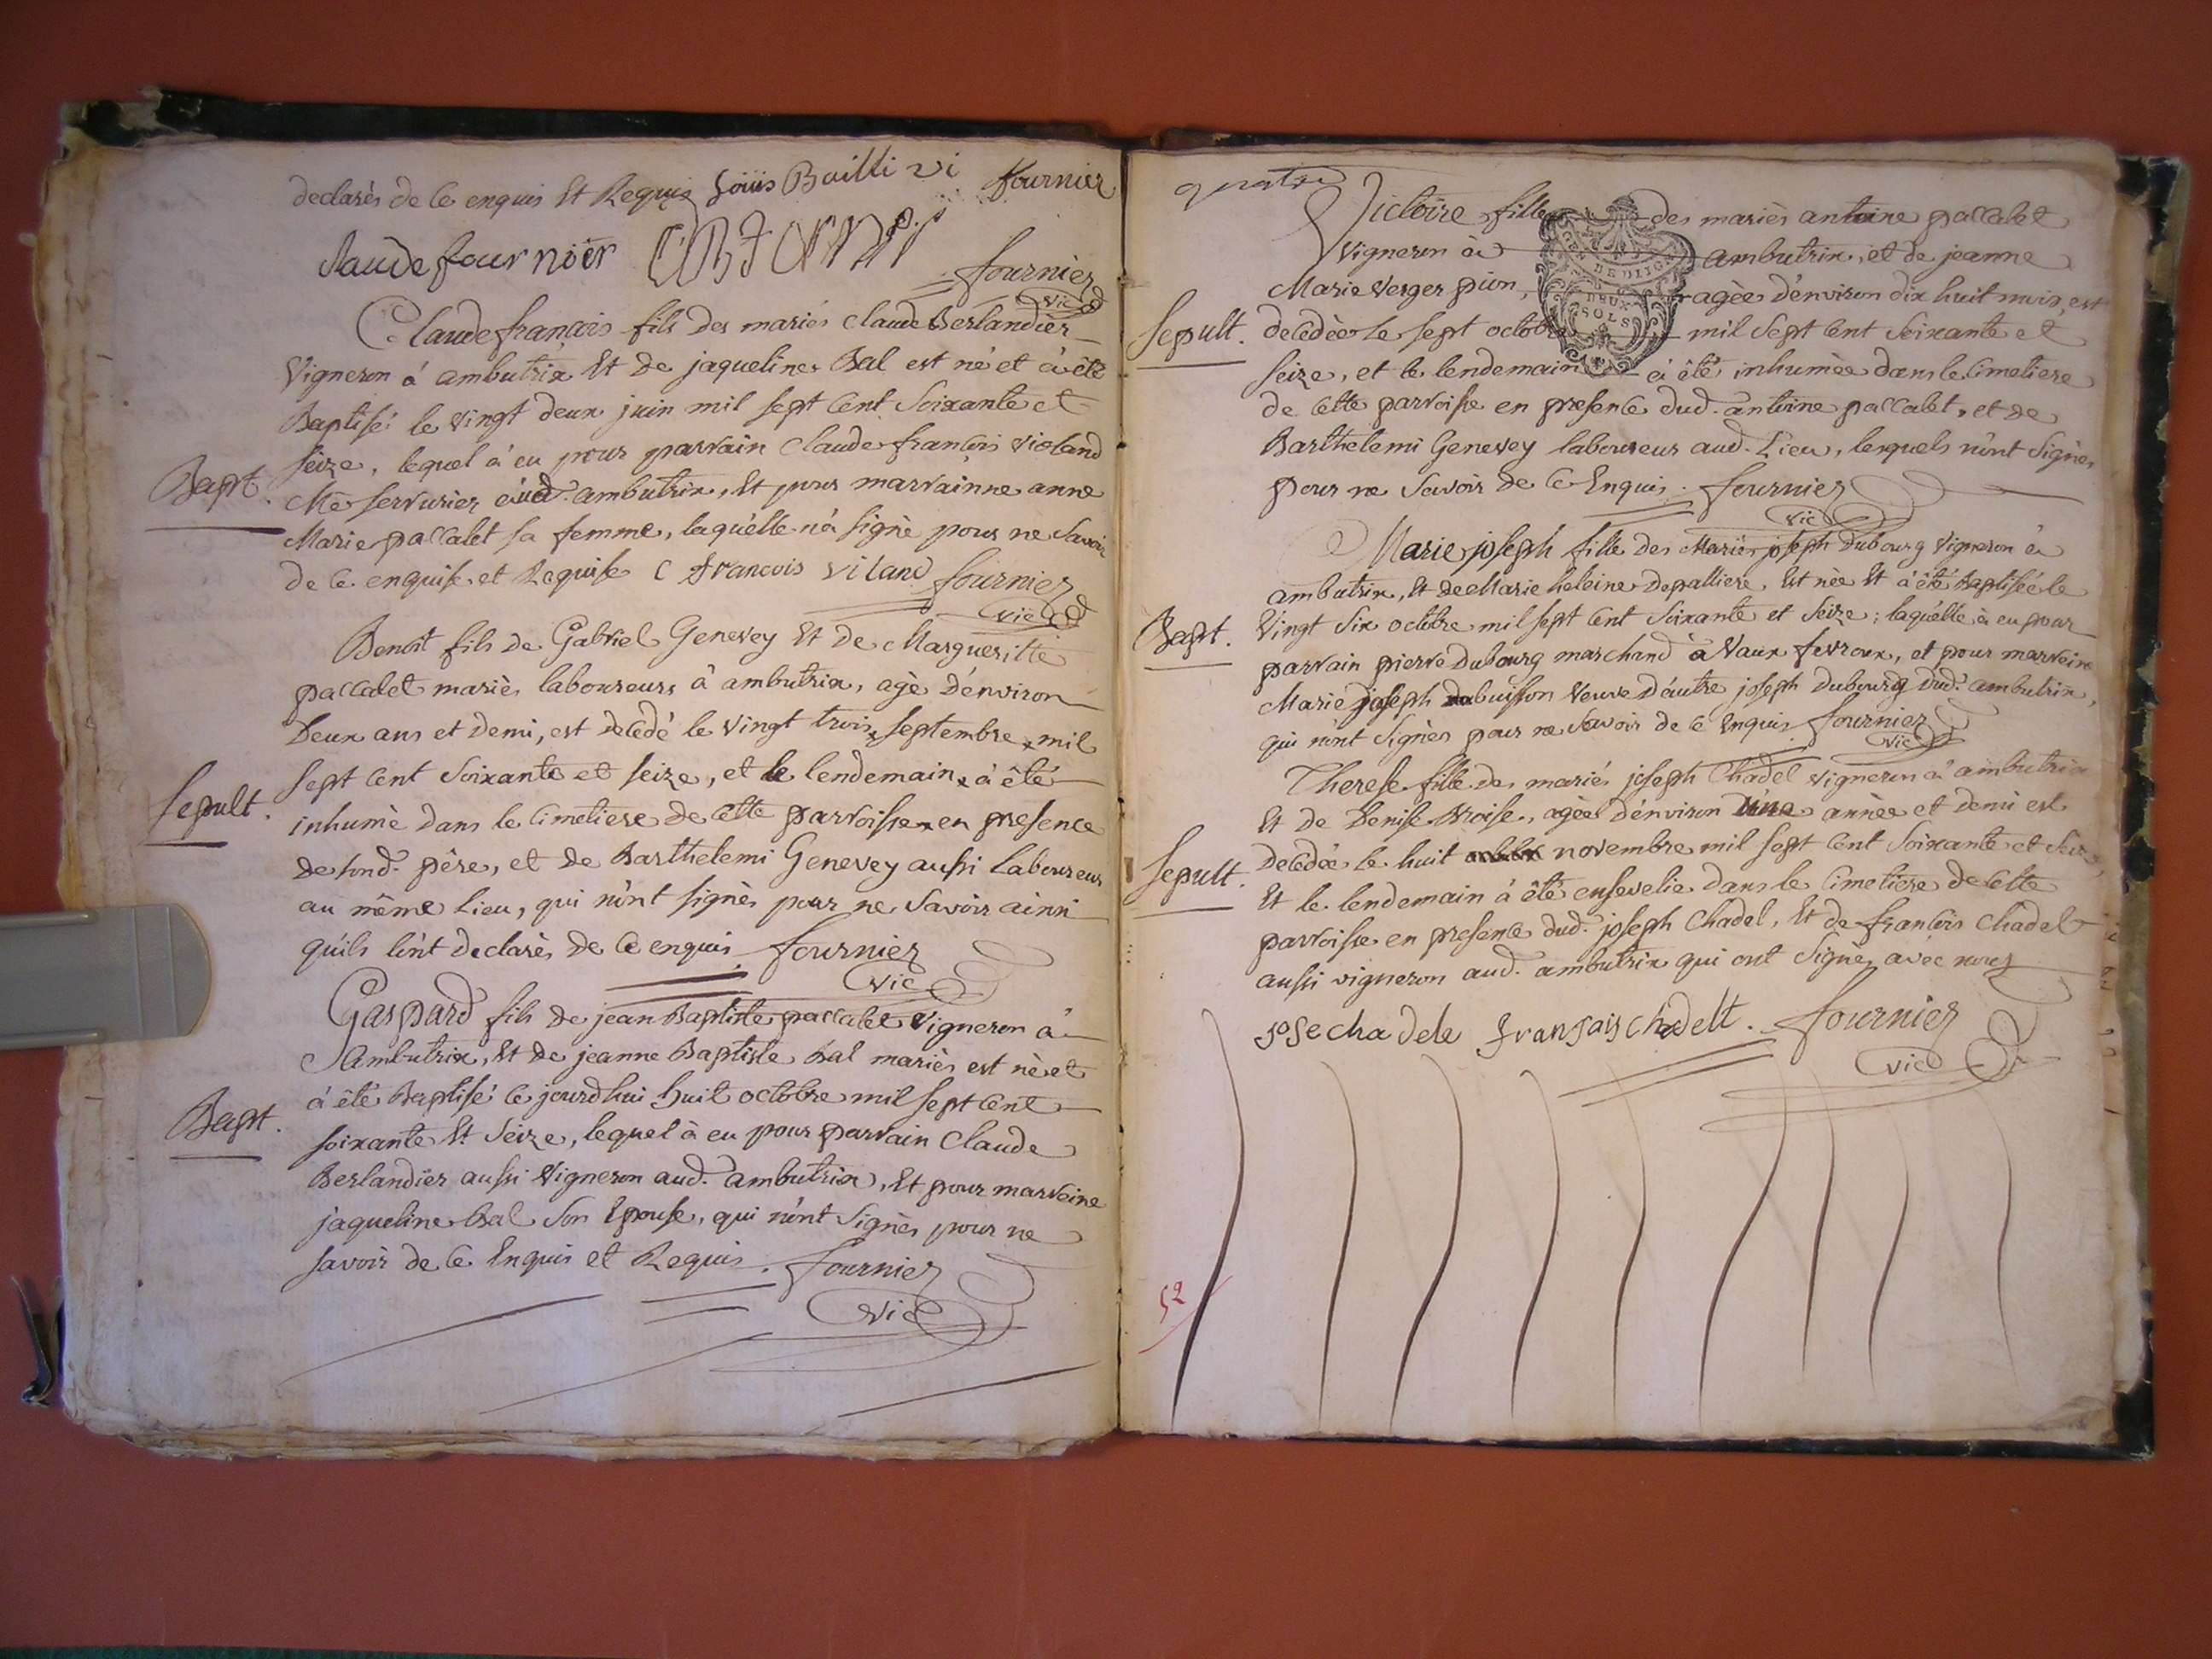 declarés de ce enquis Et Requis Loüis Bailli vi fournier
Claude fournier
fournier
vic
Claude françois fils des mariés Claude Berlandier
Vigneron à ambutrix Et de jaqueline Bal est né et à êté
Baptisé le vingt deux juin mil sept Cent Soixante et
Bapt. seize, lequel à eu pour parrain Claude françois violand
Me serrurier aud. ambutrix, Et pour marrainne anne
Marie paccalet sa femme, laquelle n'à signé pour ne Savoir
de ce enquise et Requise C françois viland fournier
vic
Benoit fils de Gabriel Genevey Et de Margueritte
paccalet mariés laboureurs à ambutrix, agé d'environ
Deux ans et Demi, est decedé le vingt trois septembre mil
Sepult. sept Cent Soixante et seize, et le lendemain à êté
inhumé dans le Cimetiere de cette parroisse en presence
de sond. pére, et de Barthelemi Genevey aussi Laboureur
au même Lieu, qui n'ont signés pour ne Savoir ainsi
qu'ils l'ont Declarés de Ce enquis fournier
vic
Gaspard fils de jean Baptiste paccalet Vigneron à
Ambutrix, Et de jeanne Baptiste Bal mariés est né et
à êté Baptisé ce jourd'hui huit octobre mil sept Cent
Bapt. soixante Et Seize, lequel à eu pour parrain Claude
Berlandier aussi Vigneron aud. ambutrix, Et pour marreine
jaqueline Bal Son Epouse, qui n'ont Signés pour ne
savoir de Ce Enquis et Requis. fournier
vic
quatre
Victoire fille des mariés antoine paccalet
Vigneron à ambutrix, et de jeanne
Marie Verger pion, agée d'environ dix huit mois, est
DEUX
SOLS
Sepult. decedée le sept octobre mil sept Cent Soixante et
Seize, et le lendemain à êté inhumée dans le Cimetiere
de cette parroisse en presence dud. antoine paccalet, et de
Barthelemi Genevey laboureur aud. Lieu, lesquels n'ont signés
pour ne Savoir de Ce Enquis. fournier
vic
Marie joseph fille des Mariés joseph Dubourg Vigneron à
ambutrix, Et de Marie heleine Depalliere, Est née Et à êté Baptisée le
Bapt. Vingt Six octobre mil sept Cent Soixante et Seize; laquelle à eu pour
parrain pierre Dubourg marchand à Vaux fevroux, et pour marreine
Marie joseph dubuisson Veuve d'autre joseph Dubourg Dud. ambutrix,
qui n'ont Signés pour ne Savoir de Ce Enquis fournier
vic
Therese fille des mariés joseph Chadel vigneron à ambutrix
Et de Denise agée d'environ une année et demi est
Sepult. Decedée le huit novembre mil sept Cent Soixante et Seize,
Et le lendemain à êté ensevelie dans le Cimetiere de cette
parroisse en presence dud. joseph Chadel, Et de françois Chadel
aussi vigneron aud. ambutrix qui ont Signés avec nous
Jose chadele franſais chadelt. fournier
vic
52